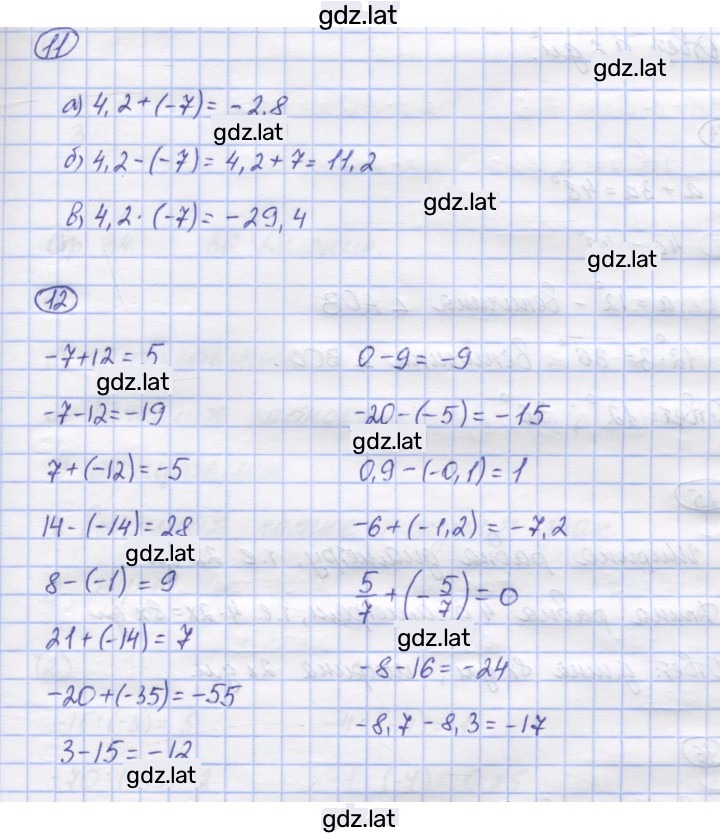 gdz.lat
11
gdz.lat
а) 4,2+(-7)= -2,8
gdz.lat
б) 4,2-(-7)= 4,2+7= 11,2
gdz.lat
в) 4,2·(-7)= -29,4
gdz.lat
12
-7+12= 5
gdz.lat
-7-12=-19
7+(-12)=-5
14-(-14)=28
gdz.lat
8-(-1)=9
21+(-14)=7
-20+(-35)=-55
3-15=-12
gdz.lat
0-9=-9
-20-(-5)=-15
gdz.lat
0,9-(-0,1)=1
-6+(-1,2)=-7,2
5/7+(-5/7)=0
gdz.lat
-8-16=-24
-8,7-8,3=-17
gdz.lat